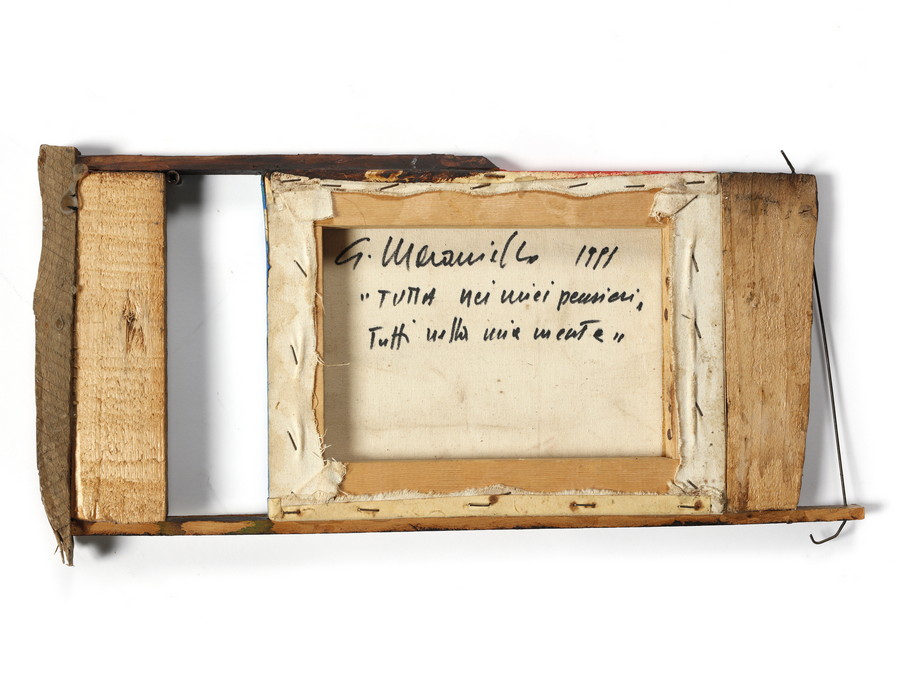 G. Maraniello 1991
"TUTTA nei miei pensieri,
Tutti nella mia mente"